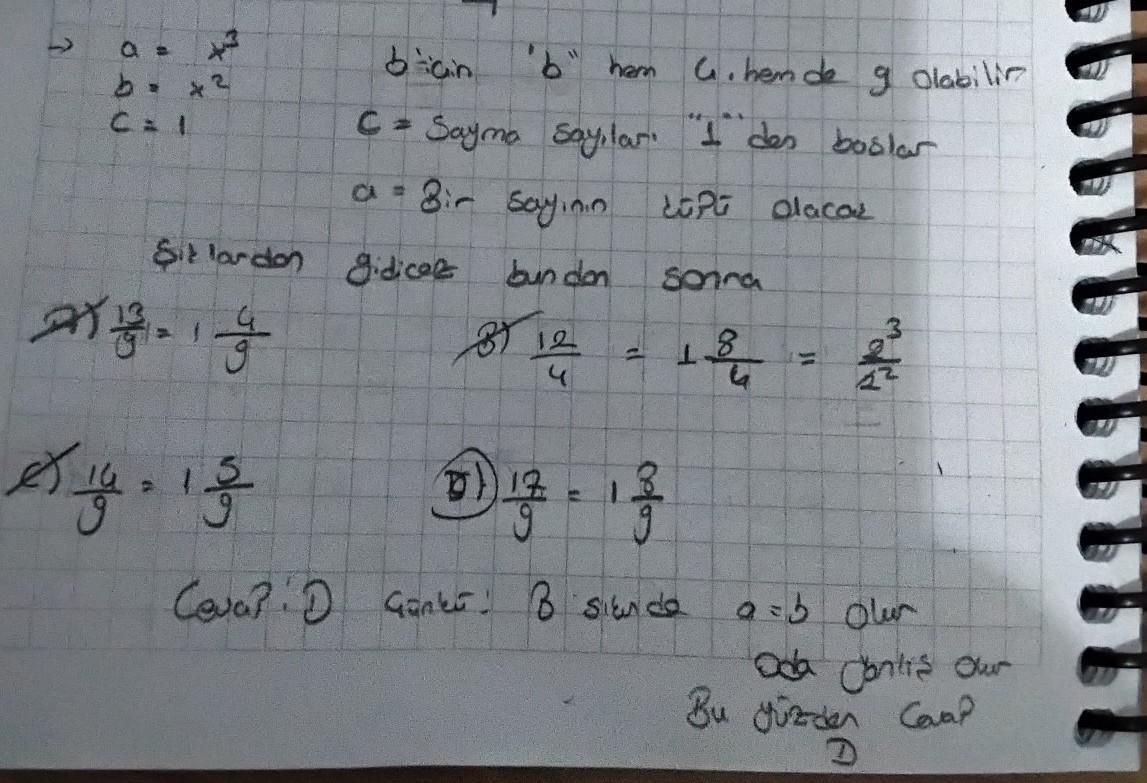 → a = x³
b = x²
c = 1
b için "b" hem 4, hem de 9 olabilir
c = Sayma sayıları "1" den başlar
a = Bir sayının küpü olacak
Şıklardan gidicez bundan sonra
A) 13/9 = 1 4/9
B) 12/4 = 1 8/4 = 2³/2²
C) 14/9 = 1 5/9
D) 17/9 = 1 8/9
Cevap: D Çünkü: B şıkında a=b olur
Oda yanlış olur
Bu yüzden Cevap
D